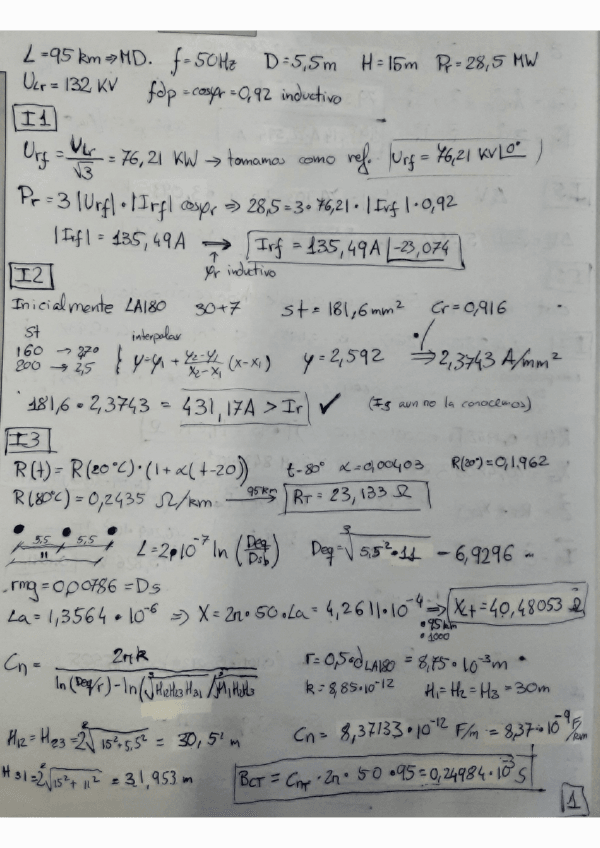 L=95 km⇒MD. f=50Hz D=5,5m H=15m Pr=28,5 MW
ULr=132 KV fdp=cosφr=0,92 inductivo
I1
Urf=ULr/√3=76,21 KW→tomamos como ref. |Urf=76,21 KV|0°
Pr=3|Urf|·|Irf|cosφr⇒28,5=3·76,21·|Irf|·0,92
|Irf|=135,49A ↔ Irf=135,49A|-23,074
φr inductivo
I2
Inicialmente LA180 30+7 St=181,6mm² Cr=0,916
St interpolar
160→2,70
200→2,5 } y=y1+(y2-y1)/(x2-x1)(x-x1) y=2,592 ⇒2,3743 A/mm²
181,6·2,3743=431,17A>Ir ✓ (Is aun no la conocemos)
I3
R(t)=R(20°C)·(1+α(t-20)) t=80° α=0,00403 R(20°)=0,1962
R(80°C)=0,2435 Ω/km →95km RT=23,133 Ω
5,5 5,5
11 L=2·10⁻⁷ln(Deq/Dsb) Deq=³√5,5²·11=6,9296 m
rmg=0,00786=Ds
La=1,3564·10⁻⁶⇒X=2π·50·La=4,2611·10⁻⁴⇒Xt=40,48053 Ω
·95km
·1000
Cn=2πk/ln(Deq/r)-ln(³√H12H23H31/³√H1H2H3) r=0,5·dLA180=8,75·10⁻³m
k=8,85·10⁻¹² H1=H2=H3=30m
H12=H23=2²√15²+5,5²=30,51 m Cn=8,37133·10⁻¹² F/m=8,37·10⁻⁹F/km
H31=2²√15²+11²=31,953 m BCT=CnT·2π·50·95=0,24984·10⁻³S
1